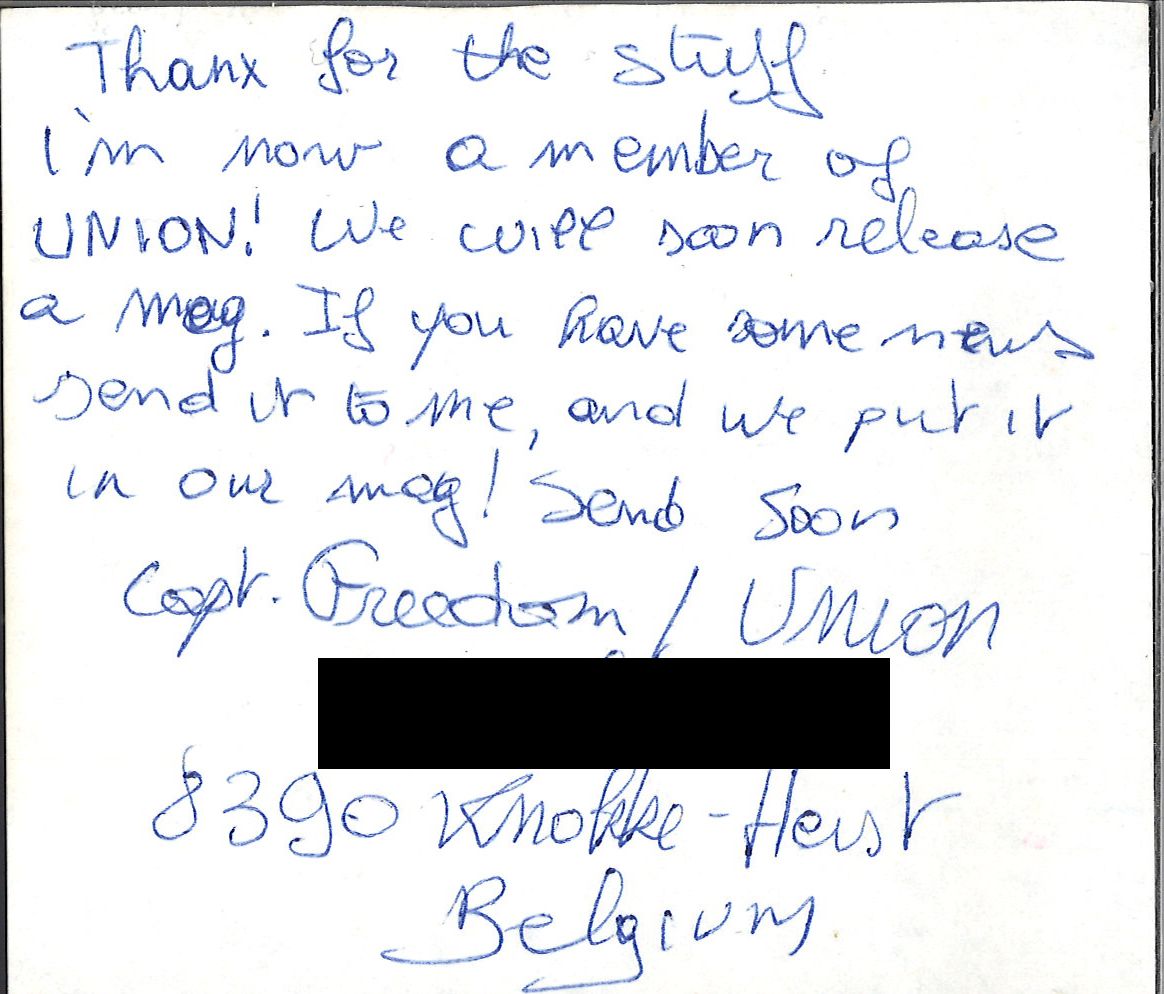 Thanx for the stuff
I'm now a member of
UNION! We will soon release
a mag. If you have some news
send it to me, and we put it
in our mag! Send Soon
Capt. Freedom / Union
8390 Knokke-Heist
Belgium